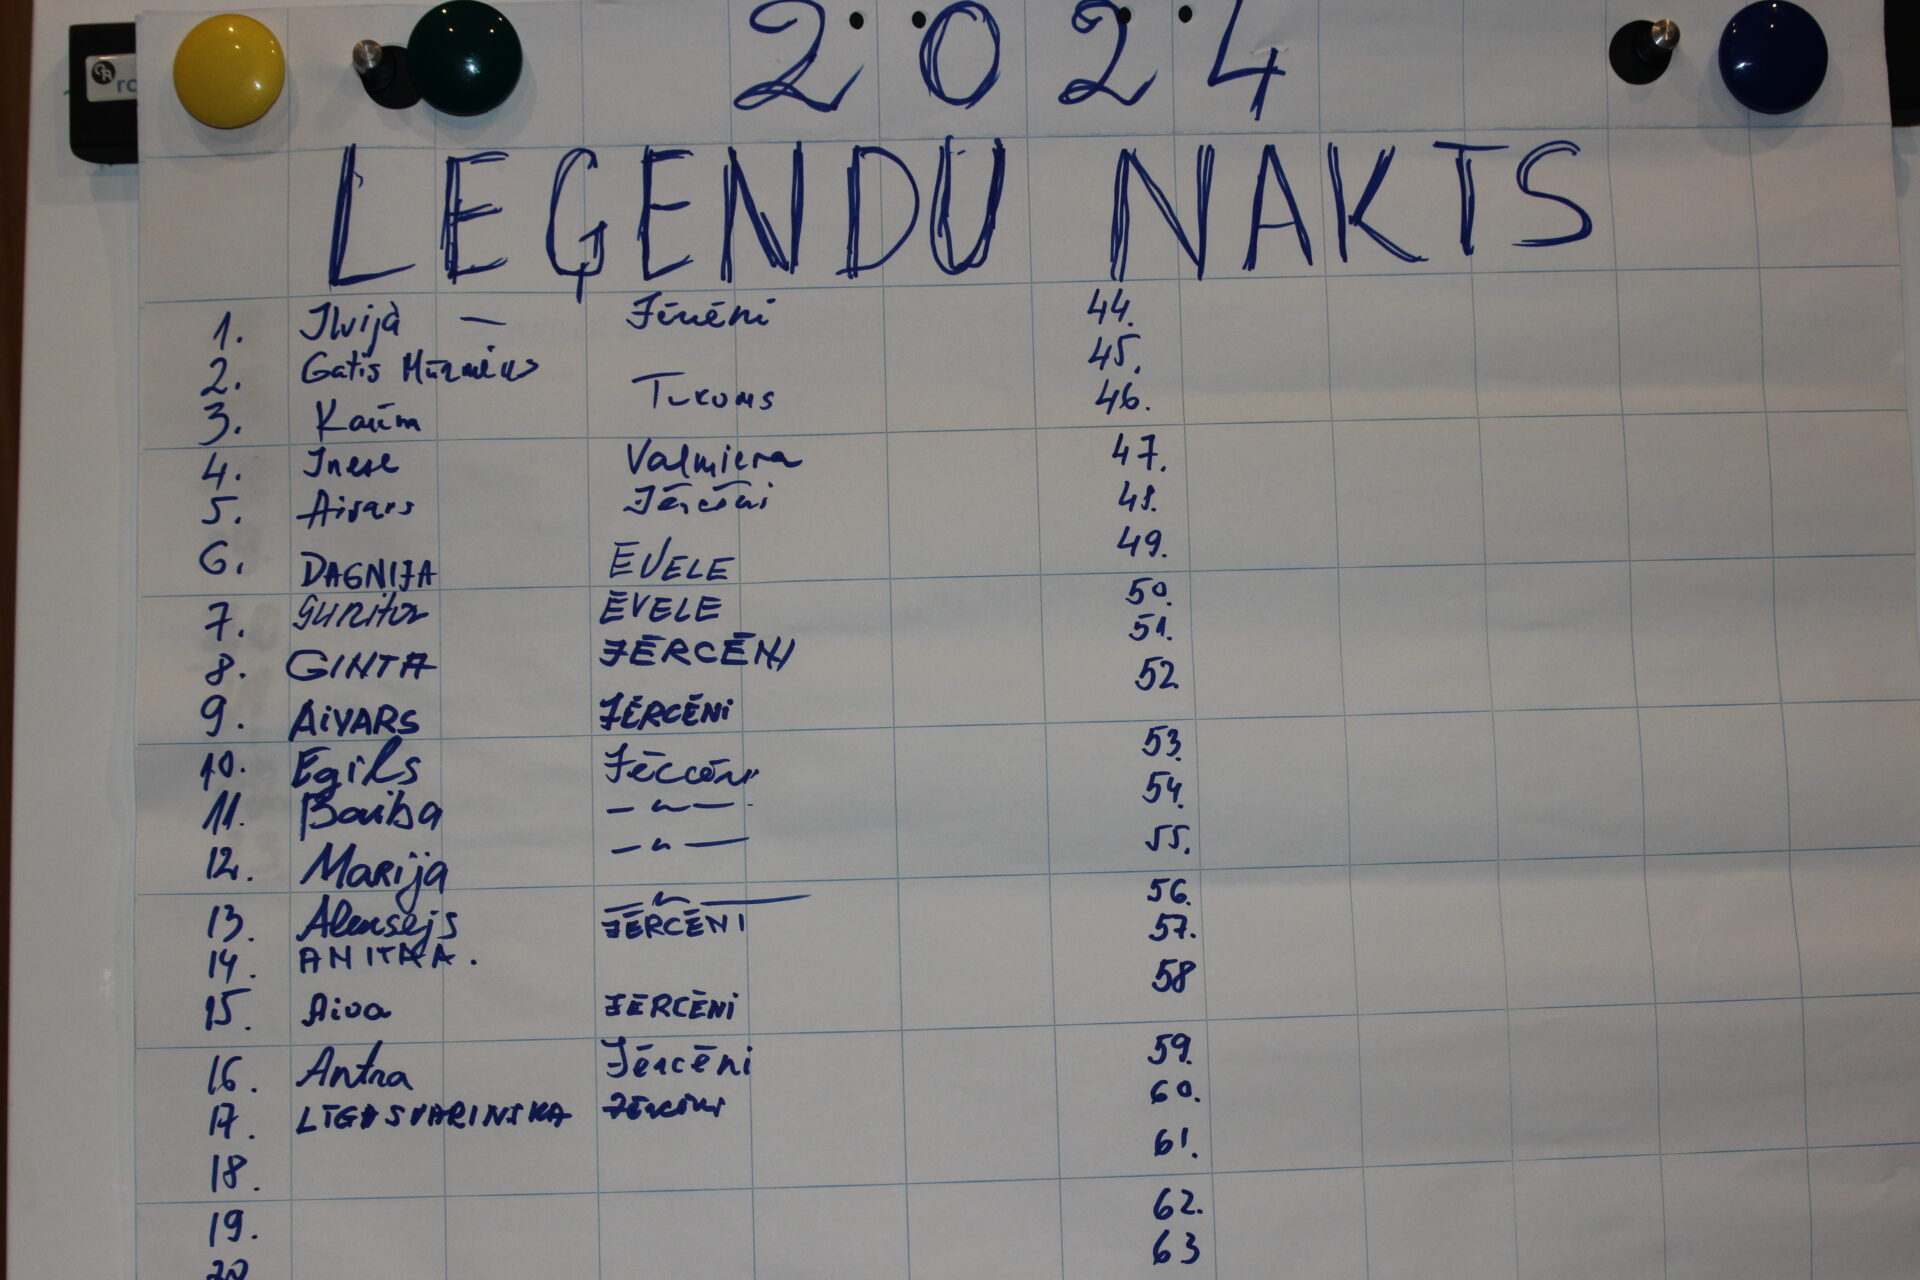 2024
LEĢENDU NAKTS
1. Ilvija — Jērcēni
2. Gatis
3. Tukums
4. Inese Valmiera
5. Aivars Jērcēni
6. DAGNIJA ĒVELE
7. Gunita ĒVELE
8. GINTA JĒRCĒNI
9. AiVARS JĒRCĒNi
10. Egils Jērcēni
11. Baiba — " —
12. Marija — " —
13. Aleksejs — " —
14. ANITRA. JĒRCĒNI
15. Aiva JĒRCĒNi
16. Antra Jērcēni
17. LĪGA SVARINSKA Jērcēni
18.
19.
20
44.
45.
46.
47.
48.
49.
50.
51.
52.
53.
54.
55.
56.
57.
58
59.
60.
61.
62.
63